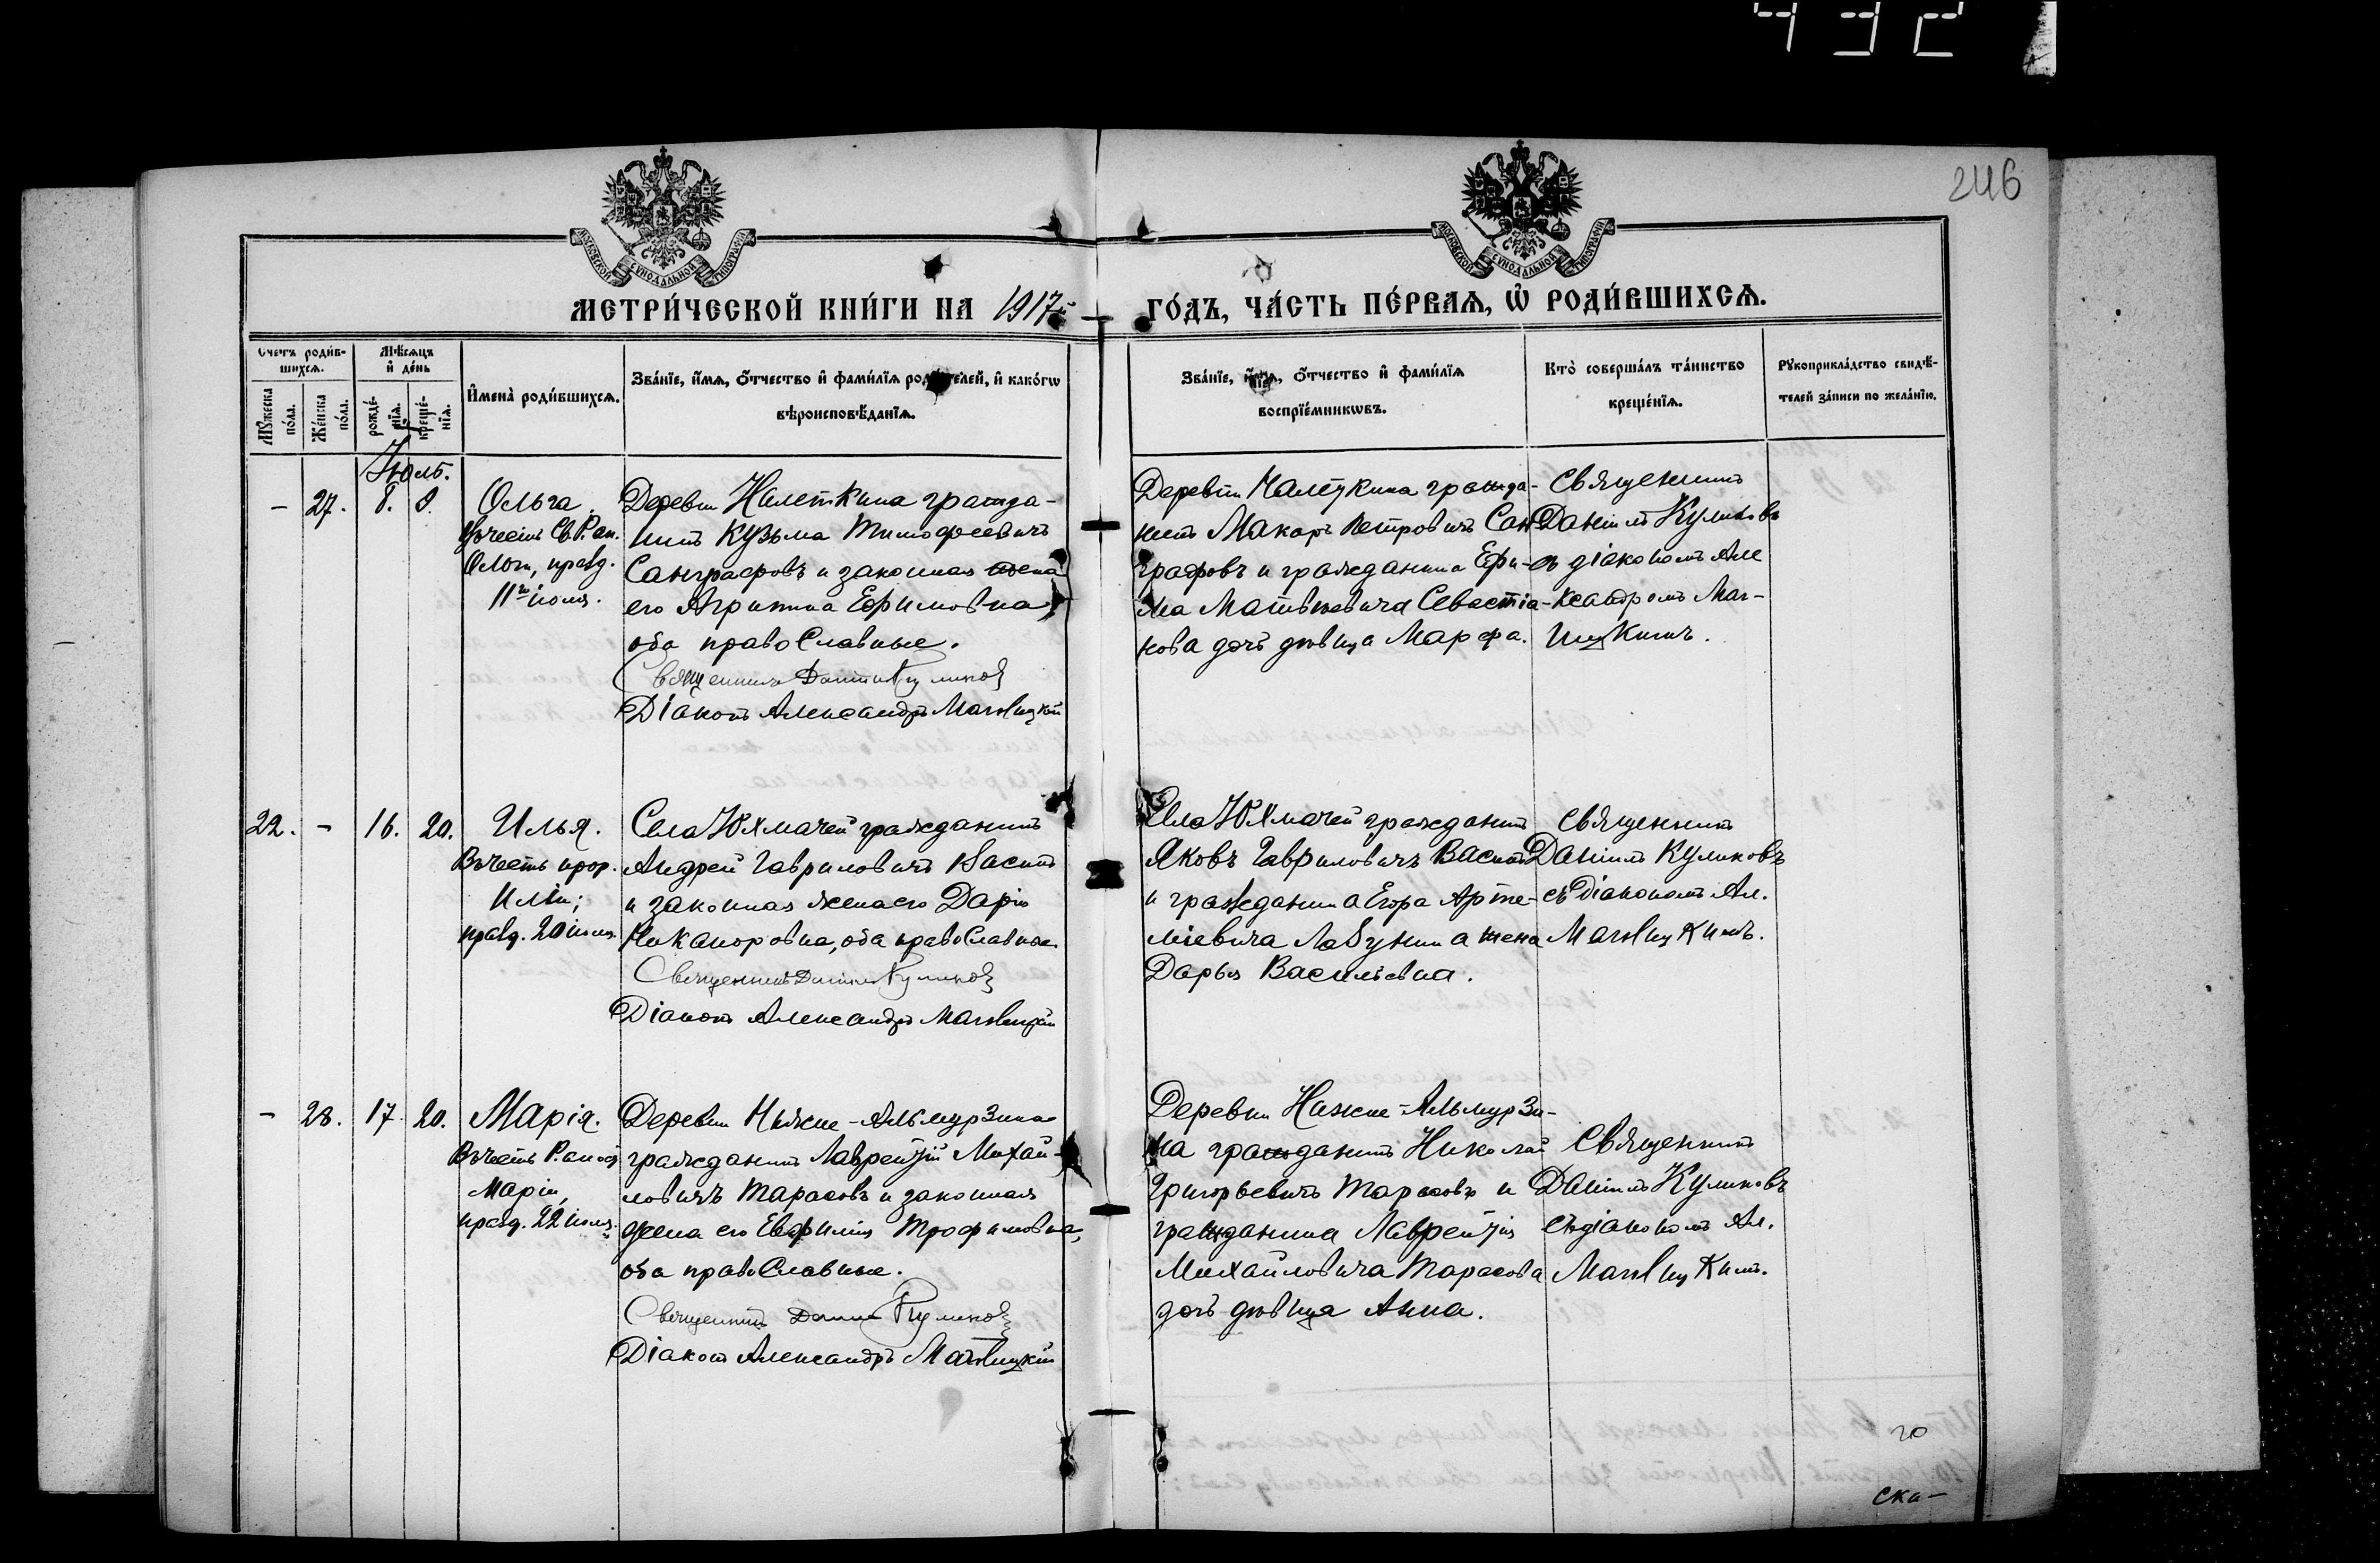 432
246
МОСКОВСКОЙ СѴНОДАЛЬНОЙ ТИПОГРАФІИ
МОСКОВСКОЙ СѴНОДАЛЬНОЙ ТИПОГРАФІИ
МЕТРИ́ЧЕСКОЙ КНИ́ГИ НА 1917й
ГО́ДЪ, ЧА́СТЬ ПЕ́РВАѦ, Ѡ҆ РОДИ́ВШИХСѦ.
Счетъ роди́в-
шихсѧ.
Мꙋ́жеска
по́ла.
Же́нска
по́ла.
Мѣ́сѧцъ
и҆ де́нь
рожде́-
нїѧ.
креще́-
нїѧ.
И҆мена̀ роди́вшихсѧ.
Зва́нїе, и҆́мѧ, ѻ҆́тчество и҆ фами́лїѧ роди́телей, и҆ како́гѡ
вѣроисповѣ́данїѧ.
Зва́нїе, и҆́мѧ, ѻ҆́тчество и҆ фами́лїѧ
воспрїе́мникѡвъ.
Кто̀ соверша́лъ та́инство
креще́нїѧ.
Рꙋкоприкла́дство свидѣ́-
телей за́писи по жела́нїю.
Іюль.
- 27. 8. 8.
Ольга.
Въ честь Св. Р. ап.
Ольги, празд.
11го іюля.
Деревни Налеткина гражда-
нинъ Кузьма Тимофеевичъ
Санграфовъ и законная жена
его Агрипина Ефимовна,
оба православные.
Священникъ Даніилъ Куликовъ
Діаконъ Александръ
Деревни Налеткина гражда-
нинъ Макаръ Петровичъ Сан
графовъ и гражданина Ефи-
ма Матвѣевича Севастіа-
нова дочь дѣвица Марфа.
Священникъ
Даніилъ Куликовъ
съ діакономъ Але
ксандромъ Маг-
ницкимъ.
22. - 16. 20.
Илья.
Въ честь прор.
Иліи;
празд. 20 іюля.
Села Юхмачей гражданинъ
Андрей Гавриловичъ Васинъ
и законная жена его Дарія
Никаноровна, оба православные.
Священникъ Даніилъ Куликовъ
Діаконъ Александръ
Села Юхмачей гражданинъ
Яковъ Гавриловичъ Васинъ
и гражданина Егора Арте-
міевича Лабунина жена
Дарья Васильевна.
Священникъ
Даніилъ Куликовъ
съ діакономъ Ал.
- 28. 17. 20.
Марія.
Въ честь Р. апост.
Маріи,
празд. 22 іюля.
Деревни Нижне-Альмурзина
гражданинъ Лаврентій Михай-
ловичъ Тарасовъ и законная
жена его Евфимія Трофимовна,
оба православные.
Священникъ Даніилъ Куликовъ
Діаконъ Александръ
Деревни Нижне-Альмурзи-
на гражданинъ Николай
Григорьевичъ Тарасовъ и
гражданина Лаврентія
Михайловича Тарасова
дочь дѣвица Анна.
Священникъ
Даніилъ Куликовъ
съ діакономъ Ал.
20
ска-